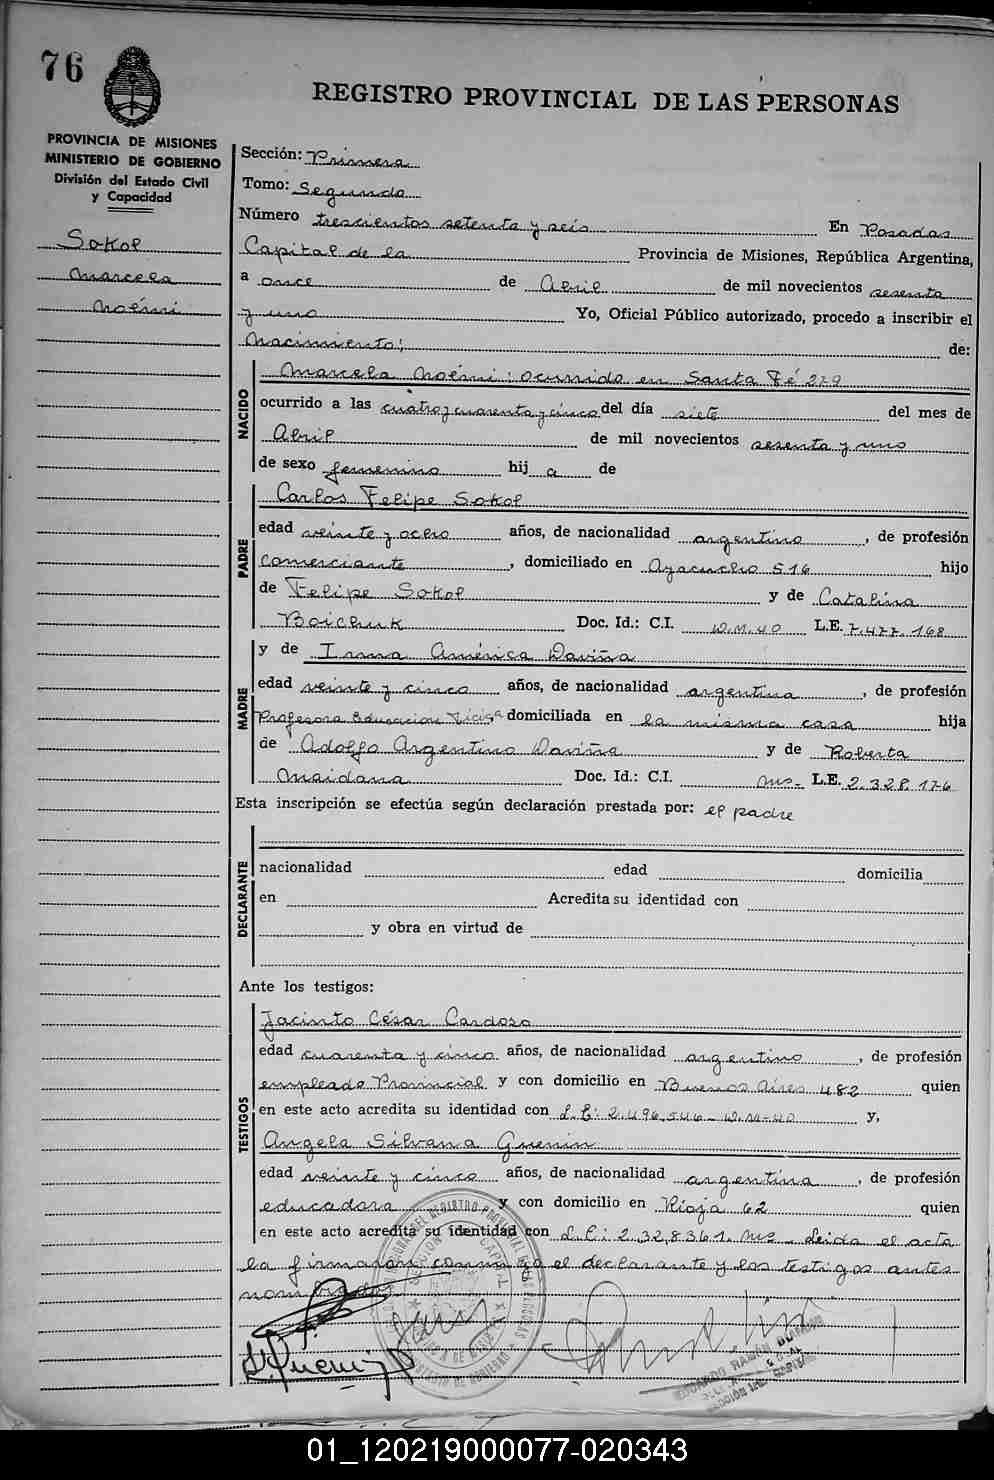 76
REGISTRO PROVINCIAL DE LAS PERSONAS
PROVINCIA DE MISIONES
MINISTERIO DE GOBIERNO
División del Estado Civil
y Capacidad
Sokol
Marcela
Noémi
Sección: Primera
Tomo: Segundo
Número trescientos setenta y seis En Posadas
Capital de la Provincia de Misiones, República Argentina,
a once de Abril de mil novecientos sesenta
y uno Yo, Oficial Público autorizado, procedo a inscribir el
Nacimiento; de:
NACIDO
Marcela Noémi; ocurrido en Santa Fé 279
ocurrido a las cuatro y cuarenta y cinco del día siete del mes de
Abril de mil novecientos sesenta y uno
de sexo femenino hij a de
PADRE
Carlos Felipe Sokol
edad veinte y ocho años, de nacionalidad argentino, de profesión
comerciante, domiciliado en Ayacucho 516 hijo
de Felipe Sokol y de Catalina
Boichuk Doc. Id.: C.I. D.M.40 L.E. 7.477.168
y de Irma América Daviña
MADRE
edad veinte y cinco años, de nacionalidad argentina, de profesión
Profesora Educacion Fisica domiciliada en la misma casa hija
de Adolfo Argentino Daviña y de Roberta
Maidana Doc. Id.: C.I. Ms- L.E. 2.328.176
Esta inscripción se efectúa según declaración prestada por: el padre
DECLARANTE
nacionalidad edad domicilia
en Acredita su identidad con
y obra en virtud de
Ante los testigos:
TESTIGOS
Jacinto César Cardozo
edad cuarenta y cinco años, de nacionalidad argentino, de profesión
empleado Provincial y con domicilio en Buenos Aires 482 quien
en este acto acredita su identidad con L.E: 2.496.546- D.M-40 y,
Angela Silvana Guenin
edad veinte y cinco años, de nacionalidad argentina, de profesión
educadora y con domicilio en Rioja 62 quien
en este acto acredita su identidad con L.E: 2.328.361. Ms- Leida el acta
la firmaron conmigo el declarante y los testigos antes
nombrados
EDUARDO RAMÓN
01_120219000077-020343